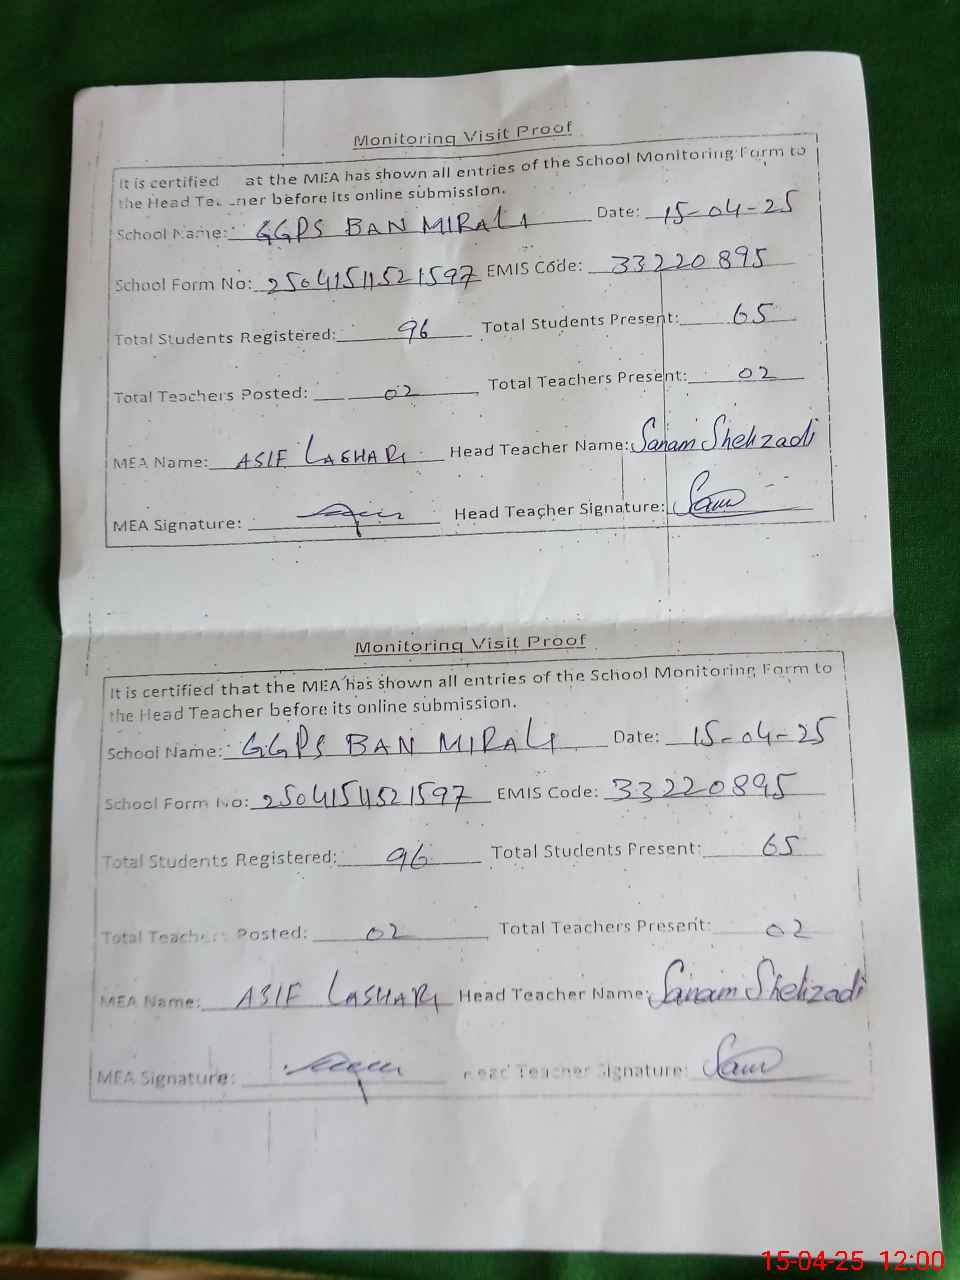 Monitoring Visit Proof
It is certified at the MEA has shown all entries of the School Monitoring Form to
the Head Teacher before its online submission.
School Name: GGPS BAN MIRALI Date: 15-04-25
School Form No: 2504151521597 EMIS Code: 33220895
Total Students Registered: 96 Total Students Present: 65
Total Teachers Posted: 02 Total Teachers Present: 02
MEA Name: ASIF LASHARI Head Teacher Name: Sanam Shehzadi
MEA Signature: Head Teacher Signature: Sanm
Monitoring Visit Proof
It is certified that the MEA has shown all entries of the School Monitoring Form to
the Head Teacher before its online submission.
School Name: GGPS BAN MIRALI Date: 15-04-25
School Form No: 2504151521597 EMIS Code: 33220895
Total Students Registered: 96 Total Students Present: 65
Total Teachers Posted: 02 Total Teachers Present: 02
MEA Name: ASIF LASHARI Head Teacher Name: Sanam Shehzadi
MEA Signature: Head Teacher Signature: Sanm
15-04-25 12:00